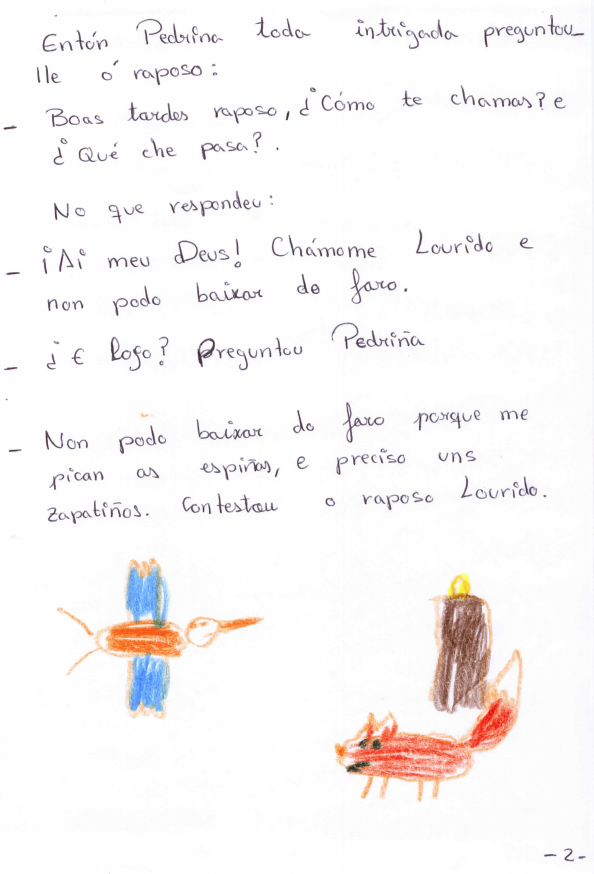 Entón Pedrina toda intrigada preguntou_
lle ó raposo:
- Boas tardes raposo, ¿Cómo te chamas? e
¿Qué che pasa?.
No que respondeu:
- ¡Ai meu Deus! Chámome Lourido e
non podo baixar do faro.
- ¿E logo? Preguntou Pedriña
- Non podo baixar do faro porque me
pican as espiñas, e preciso uns
zapatiños. Contestou o raposo Lourido.
-2-